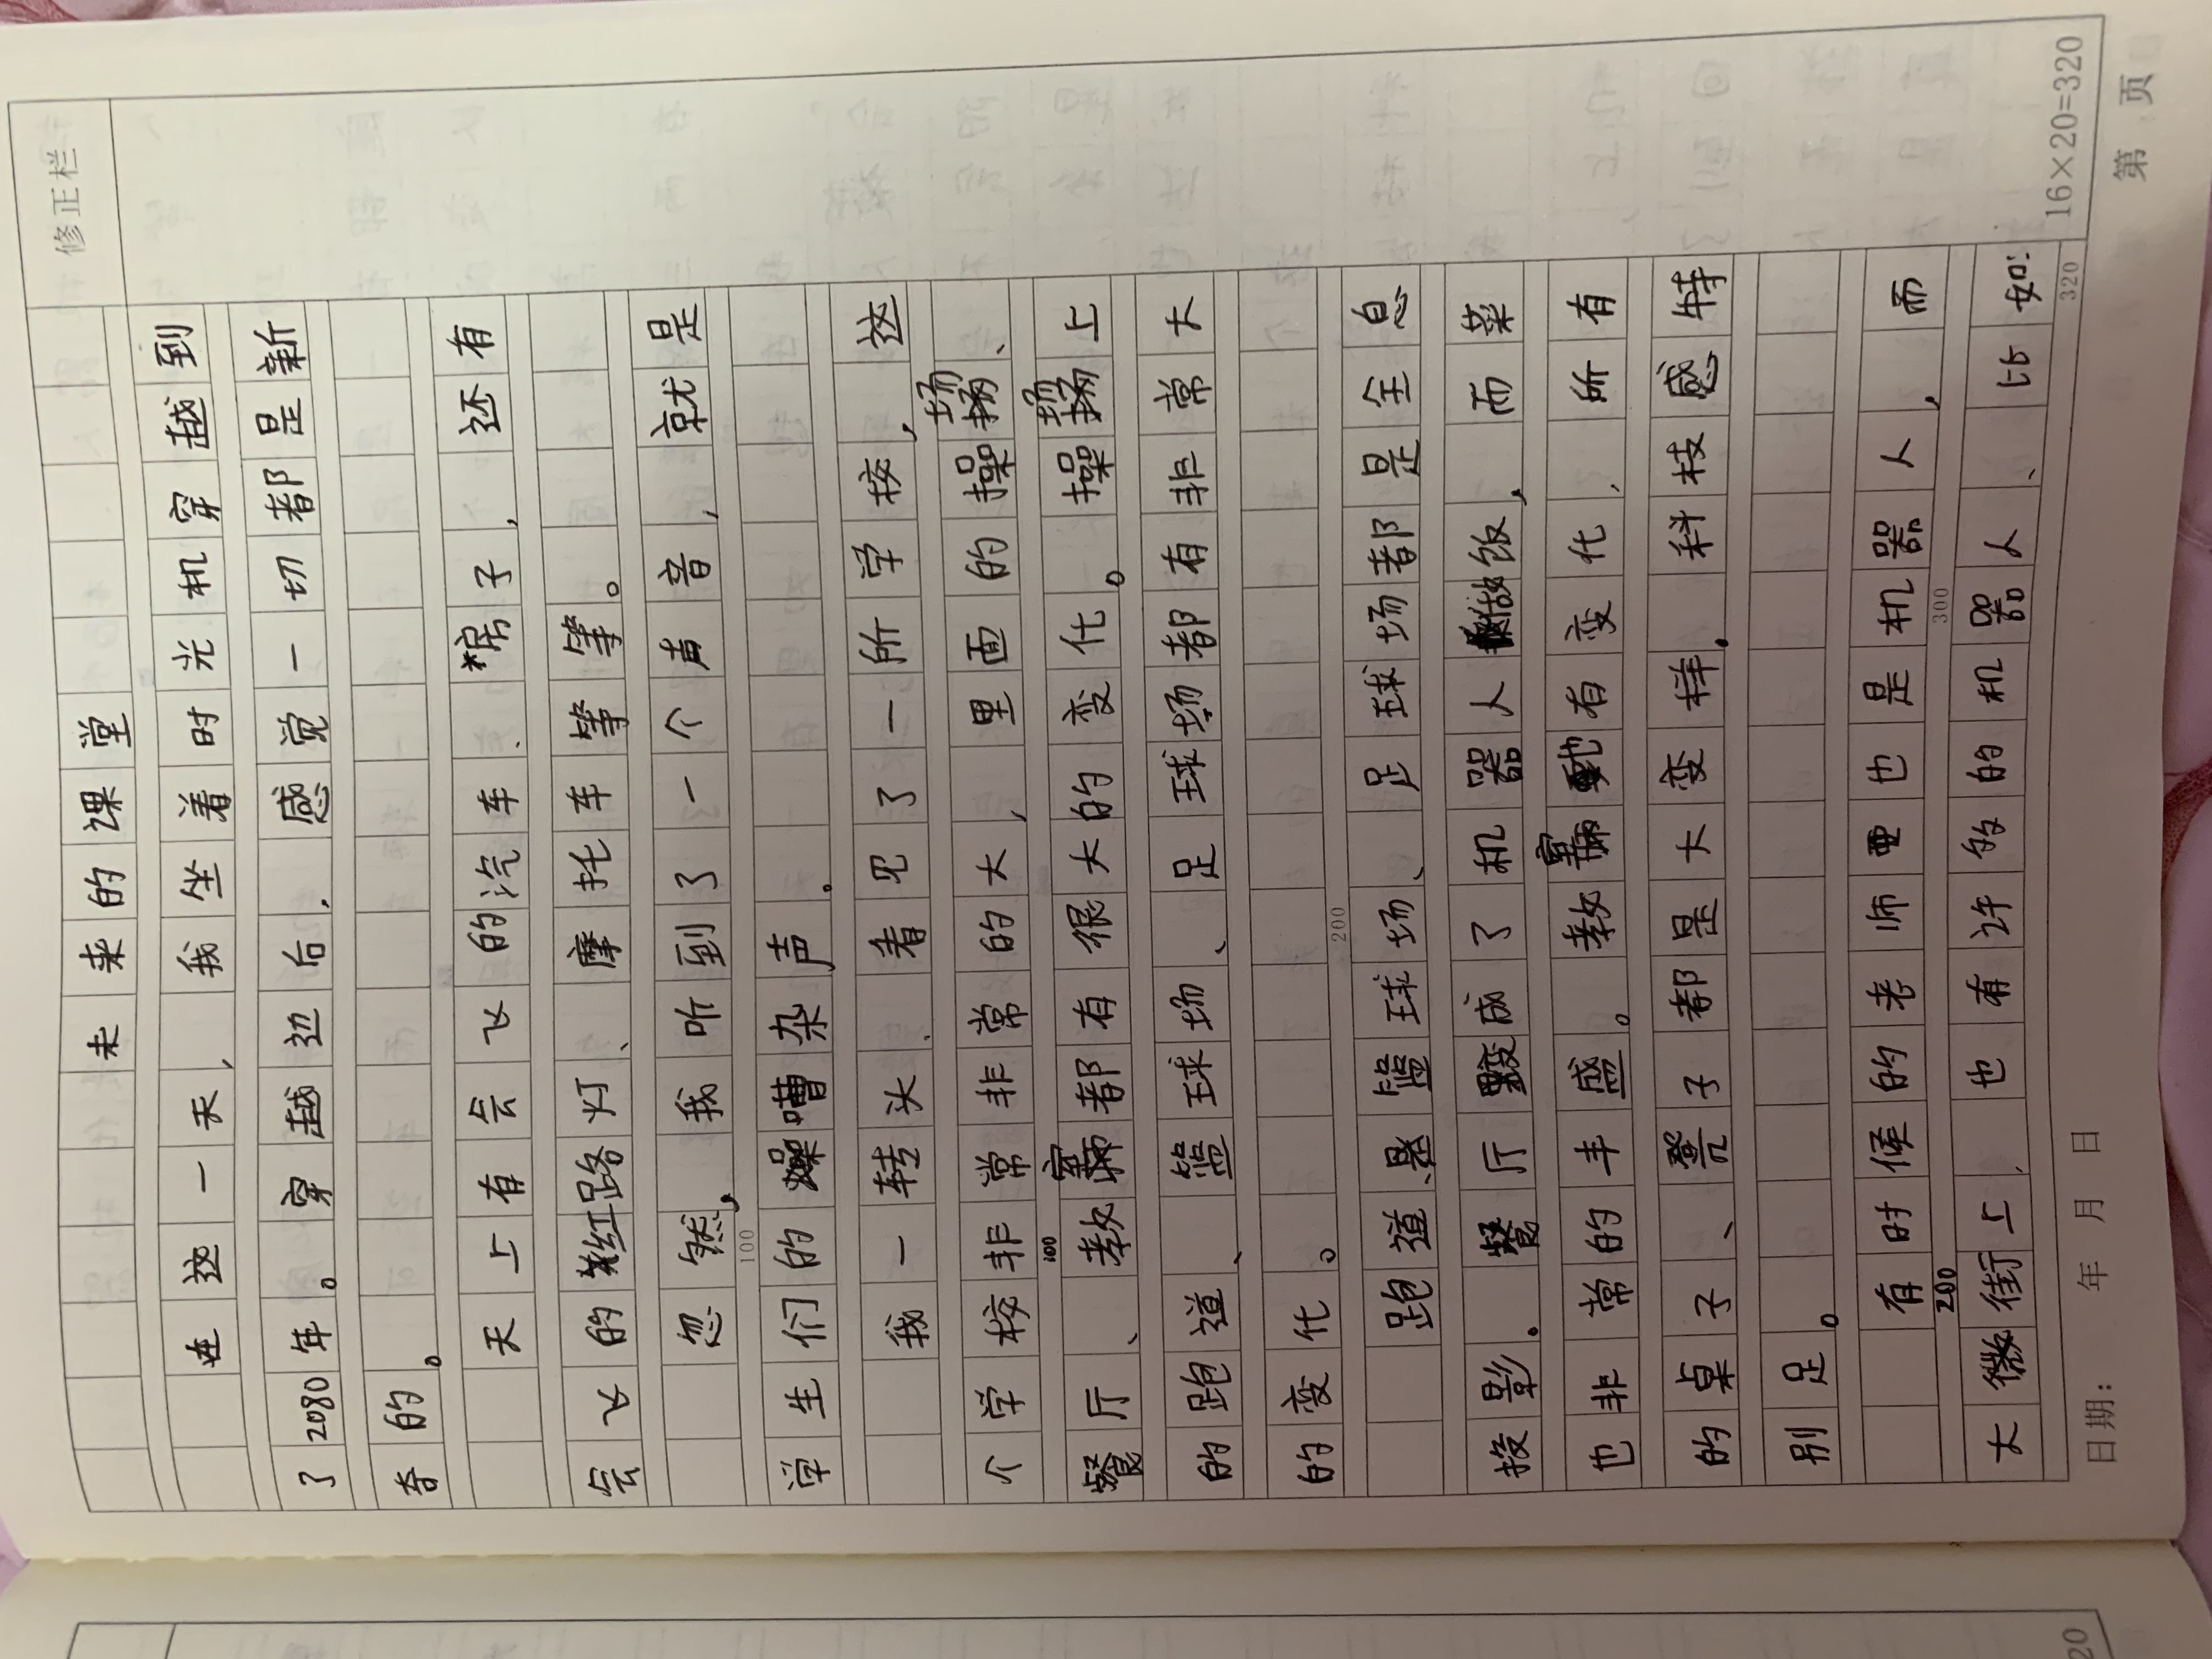 修正栏
未来的课堂
在这一天,我坐着时光机穿越到
了2080年。穿越边后,感觉一切都是新
奇的。
天上有会飞的汽车、房子,还有
会飞的红路灯、摩托车等等。
忽然,我听到了一个声音,就是
100
学生们的嘈杂声。
我一转头,看见了一所学校,这
个学校非常非常的大,里面的操场、
100
餐厅、教室都有很大的变化。操场上
的跑道、篮球场、足球场都有非常大
的变化。
200
跑道、篮球场、足球场都是全息
投影。餐厅变成了机器人做饭,而菜
也非常的丰盛。教室也有变化,所有
的桌子、凳子都是大变样。科技感特
别足。
有时候的老师也是机器人,而
200 300
大街上,也有许多的机器人、比如:
320
16×20=320
日期: 年 月 日 第 页
20